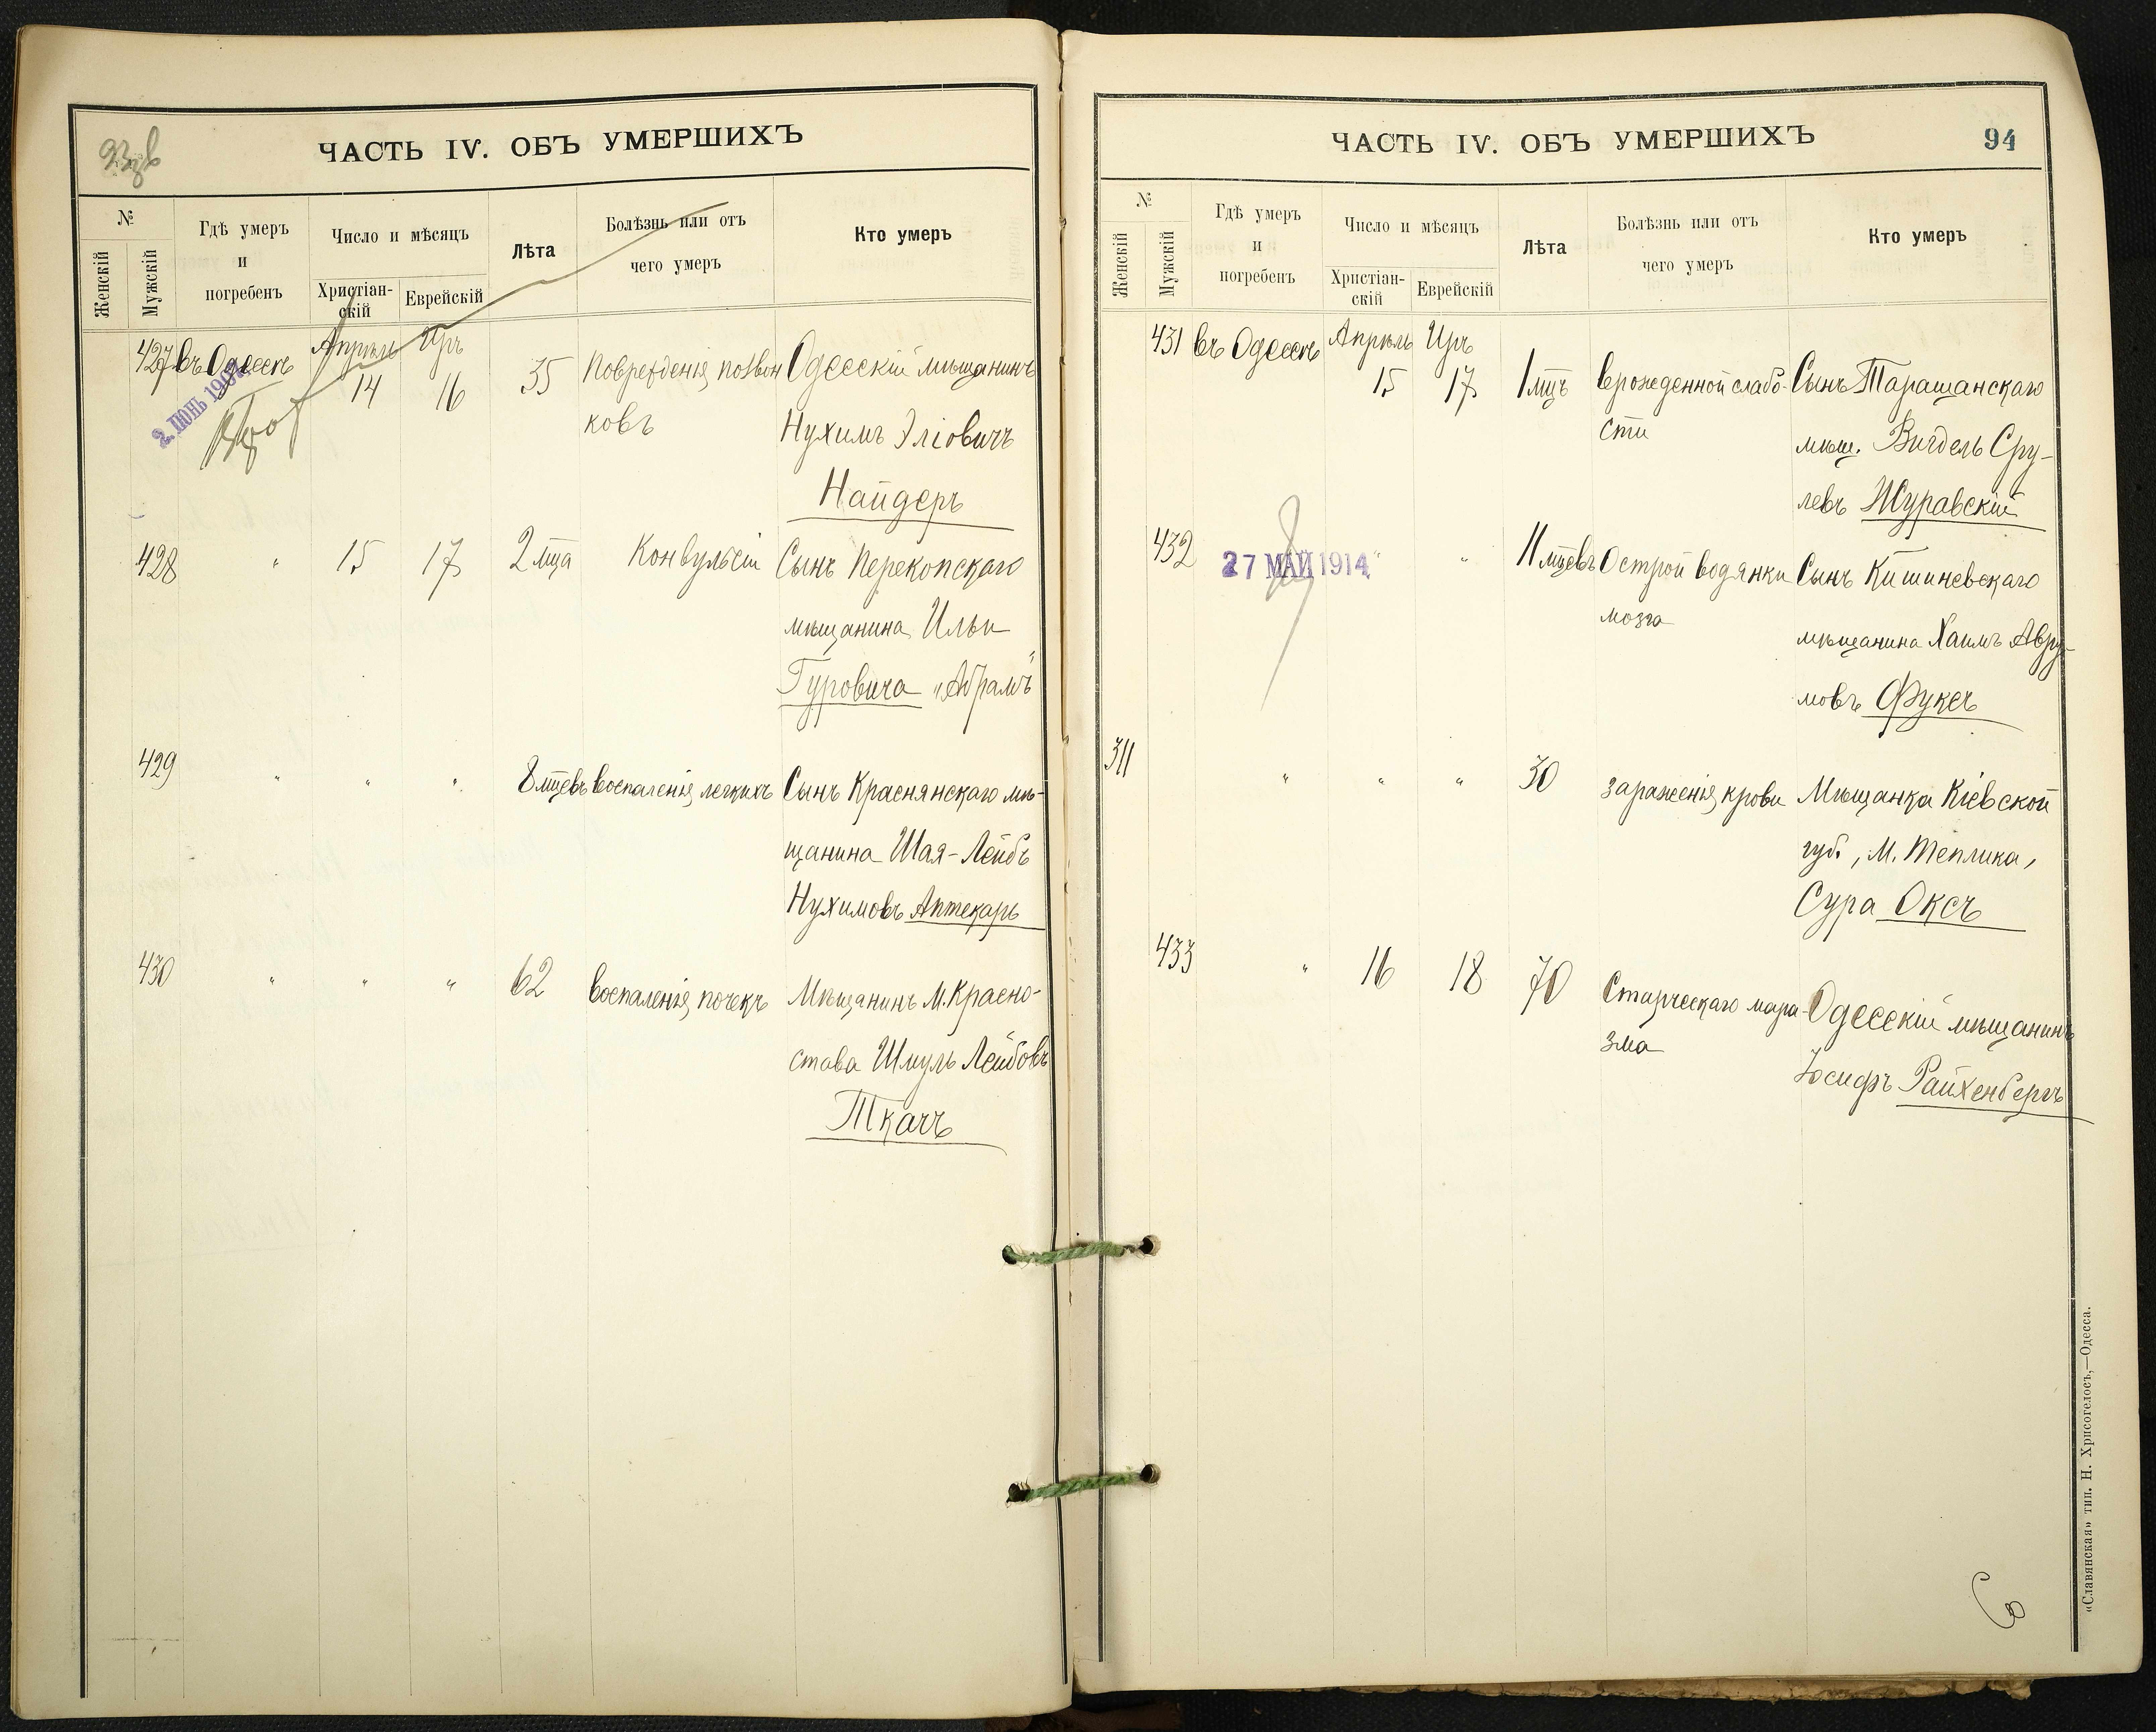 93 об
ЧАСТЬ IV. ОБЪ УМЕРШИХЪ
№
Женскій
Мужскій
Гдѣ умеръ
и
погребенъ
Число и мѣсяцъ
Христіан-
скій
Еврейскій
Лѣта
Болѣзнь или отъ
чего умеръ
Кто умеръ
427 въ Одессѣ Апрѣль 14 Іръ 16 35 Поврежденія позвон Одесскій мѣщанинъ
ковъ Нухимъ Эліовичъ
Найдеръ
2 ІЮНЬ
428 " 15 17 2 мца Конвульсіи Сынъ Перекопскаго
мѣщанина Ильи
Гуровича „Абрамъ"
429 " " " 8 мцевъ воспаленія легкихъ Сынъ Краснянскаго мѣ-
щанина Шая-Лейбъ
Нухимовъ Аптекарь
430 " " " 62 воспаленія почекъ Мѣщанинъ М. Красно-
става Шмуль Лейбовъ
Ткачъ
ЧАСТЬ IV. ОБЪ УМЕРШИХЪ
94
№
Женскій
Мужскій
Гдѣ умеръ
и
погребенъ
Число и мѣсяцъ
Христіан-
скій
Еврейскій
Лѣта
Болѣзнь или отъ
чего умеръ
Кто умеръ
431 въ Одессѣ Апрѣль 15 Іръ 17 1 мцъ врожденной слабо- Сынъ Таращанскаго
сти мѣщ. Вигдель Сру-
левъ Журавскій
432 27 МАЙ 1914 " " 11 мцевъ Острой водянки Сынъ Кишиневскаго
мозга мѣщанина Хаимъ Авру-
мовъ Фуксъ
311 " " " 30 зараженія крови Мѣщанка Кіевской
губ., М. Теплика,
Сура Оксъ
433 " 16 18 70 Старческаго мара- Одесскій мѣщанинъ
зма Іосифъ Райхенбергъ
«Славянская» тип. Н. Хрисогелосъ,—Одесса.